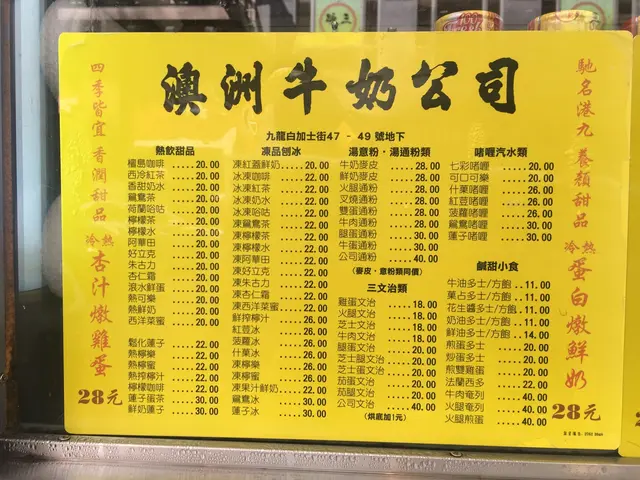 澳洲牛奶公司
九龍白加士街47 - 49 號地下
四季皆宜 香潤甜品
冷熱
杏汁燉雞蛋
28元
熱飲甜品
檀島咖啡 ......20.00
西冷紅茶 ......20.00
香甜奶水 ......20.00
鴛鴦茶 ......20.00
荷蘭哈咕 ......20.00
檸檬茶 ......20.00
檸檬水 ......20.00
阿華田 ......20.00
好立克 ......20.00
朱古力 ......20.00
杏仁霜 ......20.00
滾水鮮蛋 ......20.00
熱可樂 ......20.00
熱鮮奶 ......20.00
西洋菜蜜 ......20.00
鬆化蓮子 ......22.00
熱檸樂 ......22.00
熱檸蜜 ......22.00
熱撐檸汁 ......22.00
檸檬咖啡 ......22.00
蓮子蛋茶 ......30.00
鮮奶蓮子 ......30.00
凍品刨冰
凍紅蓋鮮奶 .....20.00
冰凍咖啡 ......22.00
冰凍紅茶 ......22.00
冰凍奶水 ......22.00
冰凍哈咕 ......22.00
凍鴛鴦茶 ......22.00
凍檸檬茶 ......22.00
凍檸檬水 ......22.00
凍阿華田 ......22.00
凍好立克 ......22.00
凍朱古力 ......22.00
凍杏仁霜 ......22.00
凍西洋菜蜜 .....22.00
鮮搾檸汁 ......26.00
紅荳冰 ......26.00
菠蘿冰 ......26.00
什菓冰 ......26.00
凍檸樂 ......26.00
凍檸蜜 ......26.00
凍果汁鮮奶 .....22.00
鴛鴦冰 ......30.00
蓮子冰 ......30.00
湯意粉·湯通粉類
牛奶麥皮 ......28.00
鮮奶麥皮 ......28.00
火腿通粉 ......28.00
叉燒通粉 ......28.00
雙蛋通粉 ......28.00
牛肉通粉 ......28.00
腿蛋通粉 ......30.00
牛蛋通粉 ......30.00
公司通粉 ......40.00
(麥皮·意粉類同價)
三文治類
雞蛋文治 ......18.00
火腿文治 ......18.00
芝士文治 ......18.00
牛肉文治 ......18.00
腿蛋文治 ......20.00
芝士腿文治 .....20.00
芝士蛋文治 .....20.00
茄蛋文治 ......20.00
茄腿文治 ......20.00
公司文治 ......40.00
(烘底加1元)
啫喱汽水類
七彩啫喱 ......20.00
可口可樂 ......20.00
什菓啫喱 ......26.00
紅荳啫喱 ......26.00
菠蘿啫喱 ......26.00
鴛鴦啫喱 ......30.00
蓮子啫喱 ......30.00
鹹甜小食
牛油多士/方飽 ..11.00
菓占多士/方飽 ..11.00
花生醬多士/方飽 ..11.00
奶油多士/方飽 ..11.00
鮮油多士/方飽 ..14.00
煎蛋多士 ......20.00
炒蛋多士 ......20.00
煎雙雞蛋 ......20.00
法蘭西多 ......22.00
牛肉奄列 ......40.00
火腿奄列 ......40.00
火腿煎蛋 ......40.00
馳名港九 養顏甜品
冷熱
蛋白燉鮮奶
28元